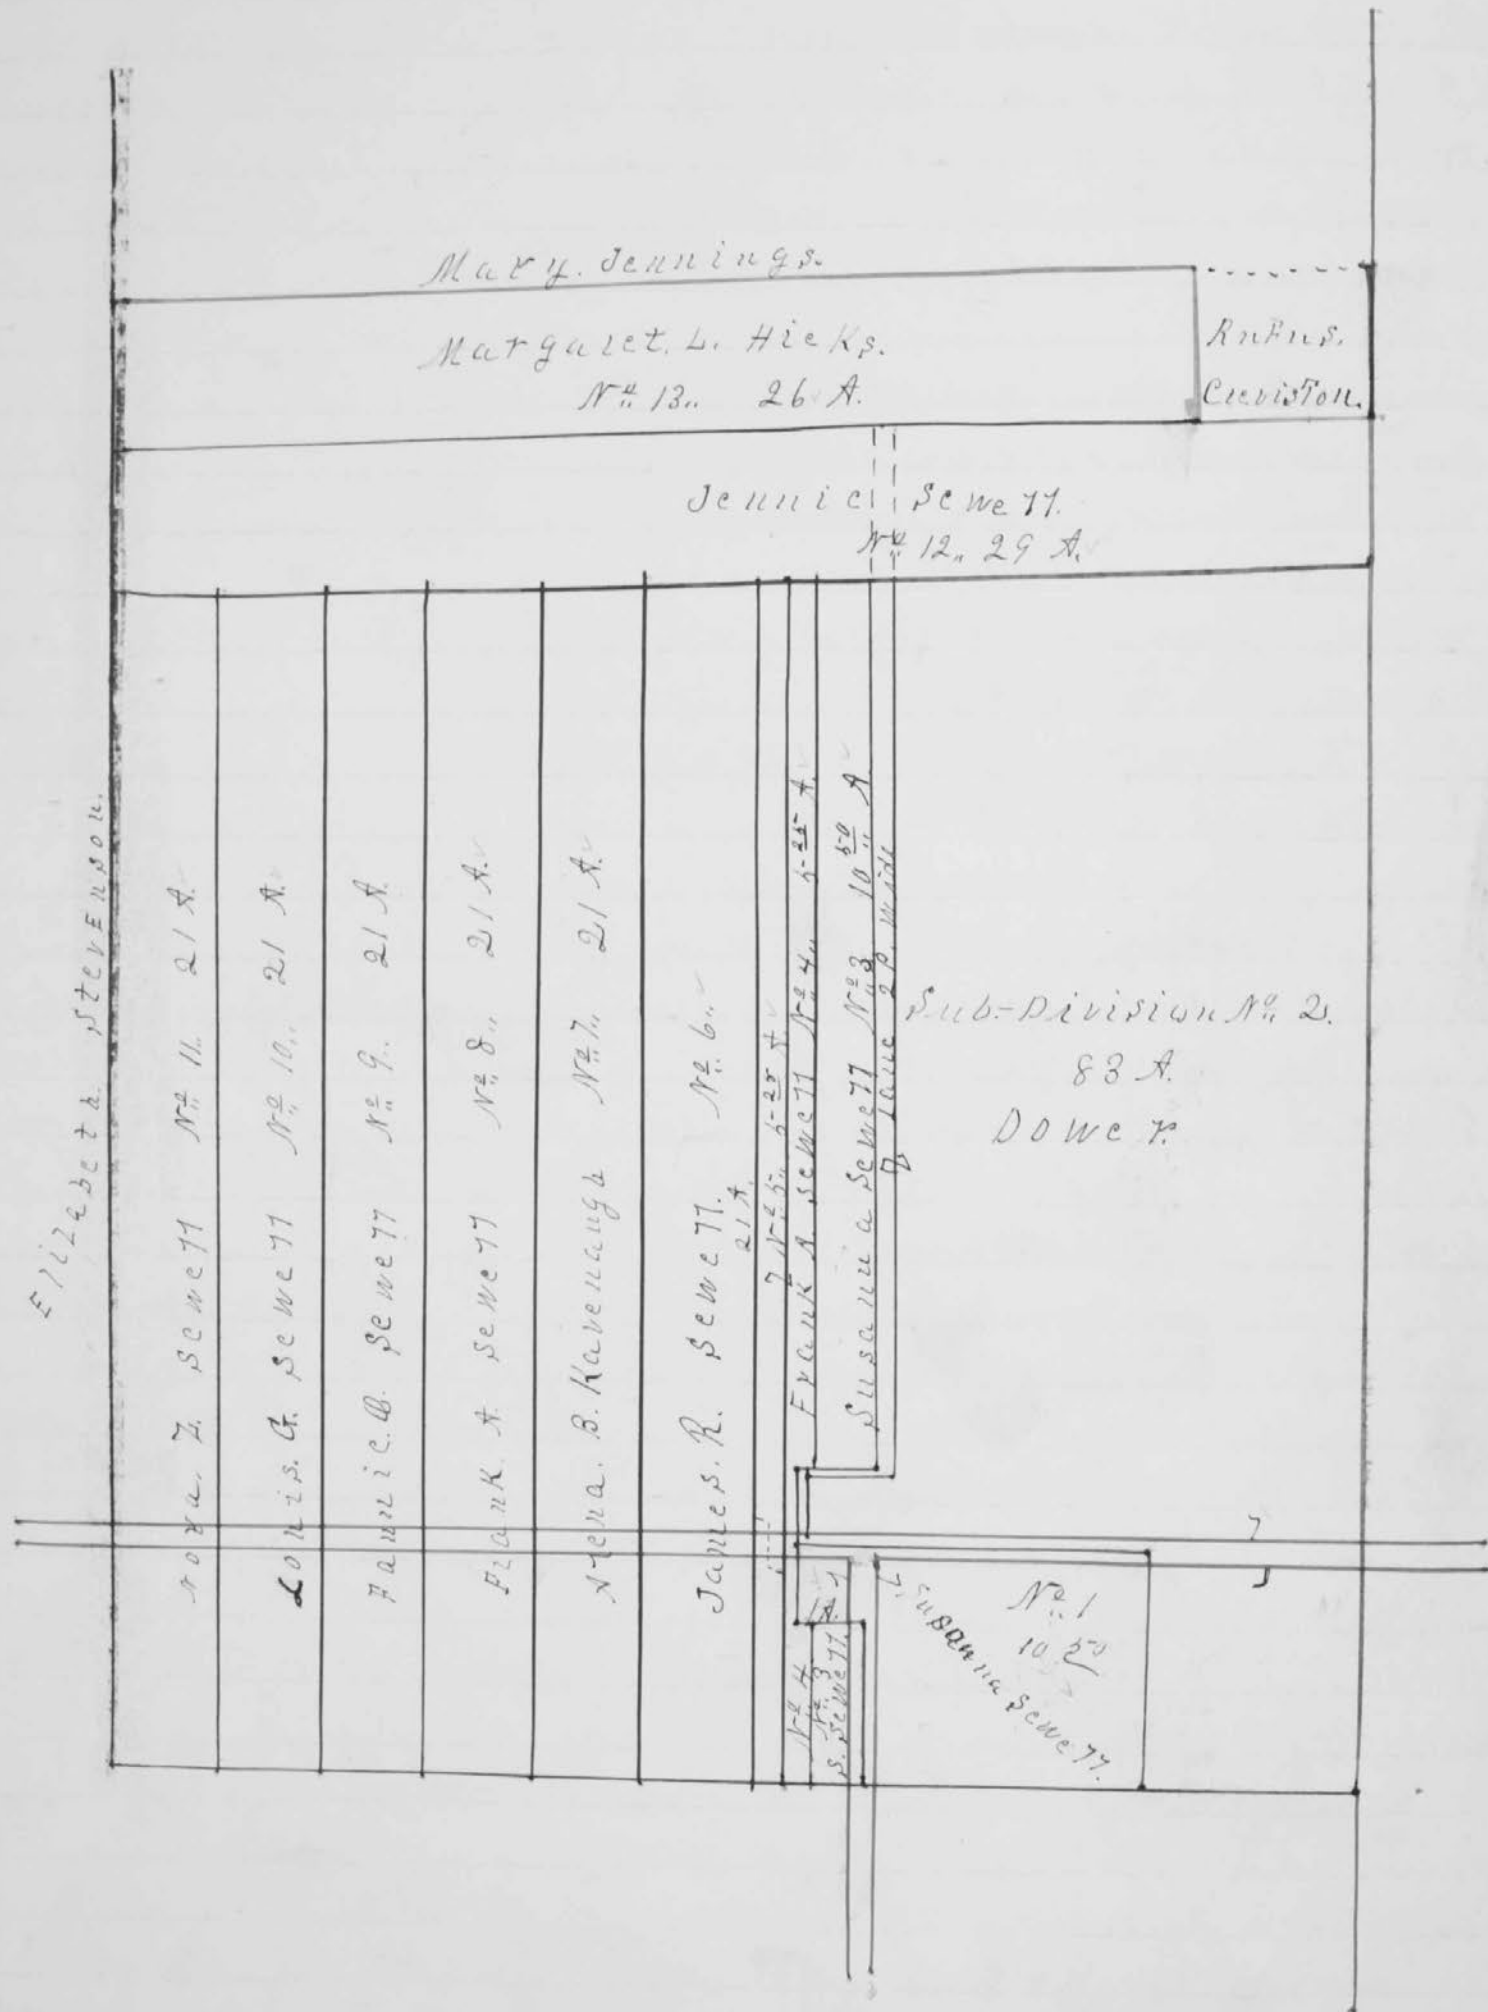 Mary. Jennings.
Margaret. L. Hicks.
No. 13.. 26 A.
Rufus.
Creviston.
Jennie Sewell.
No 12.. 29 A.
Elizabeth Stevenson.
Nora Z. Sewell No. 11.. 21 A.
Louis. G. Sewell No. 10.. 21 A.
Fannie. B. Sewell No. 9.. 21 A.
Frank. A Sewell No. 8.. 21 A.
B. Kavenaugh No. 7.. 21 A.
James. R. Sewell. No. 6..
21 A.
No 5.. 5-25 A.
Frank A. Sewell No 4.. 5-25 A.
Susanna Sewell No 3 10 50 A
Lane 2 P. Wide
Sub-Division No. 2.
83 A.
Dower.
1 A.
No 4
No. 3
S. Sewell.
No. 1
10 50
Susanna Sewell.